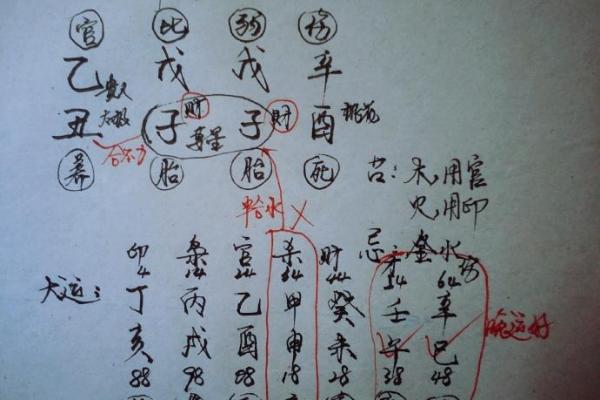 官 比 伤
乙 戊 戊 辛
贵人 太极
丑 子 财 子 财 酉 桃花
合不力
养 胎 胎 死
吉：木用官
火用印
忌：金水
印 枭 官 杀 财 才 伤
4 14 24 34 44 54 64
大运：丁 丙 乙 甲 癸 壬 辛
亥 戌 酉 申 未 午 巳
晚运好
88 98 08 18 28 38 48